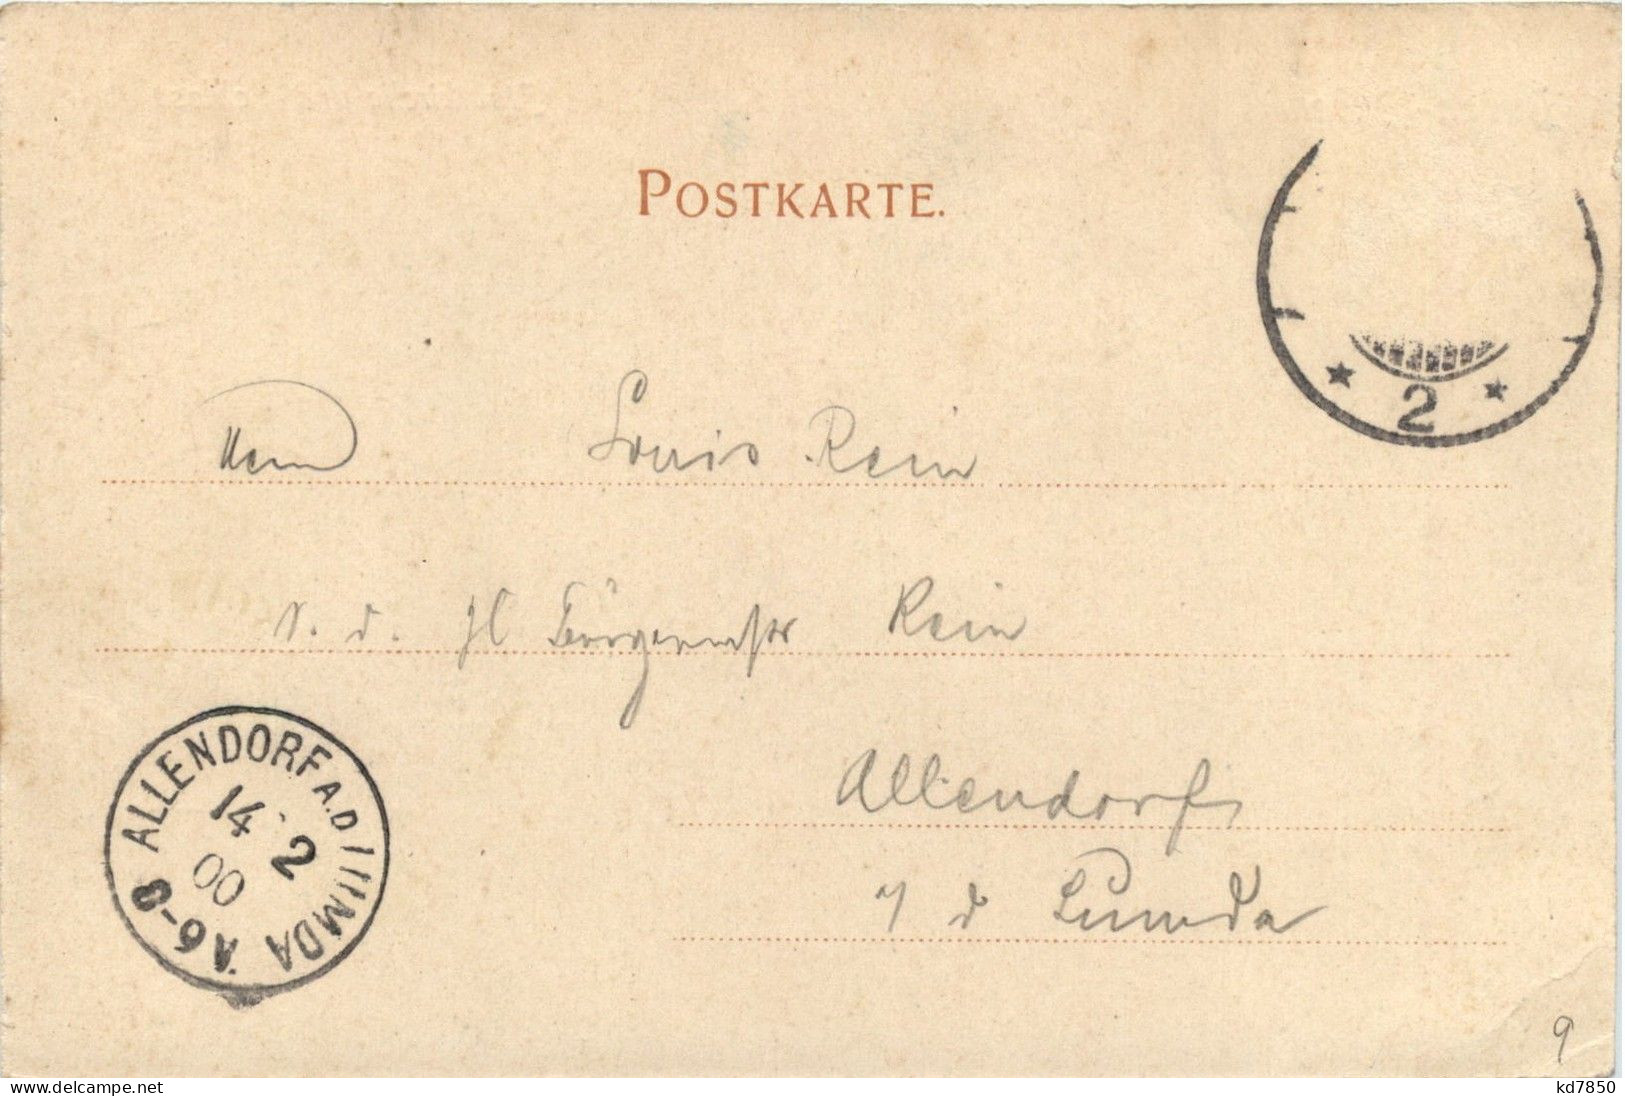 POSTKARTE.
2
Herrn Louis Rein
S. d. H Bürgermstr Rein
Allendorf
a d Lumda
ALLENDORF A.D LUMDA
14 2
00
6-8 V
9
www.delcampe.net
kd7850